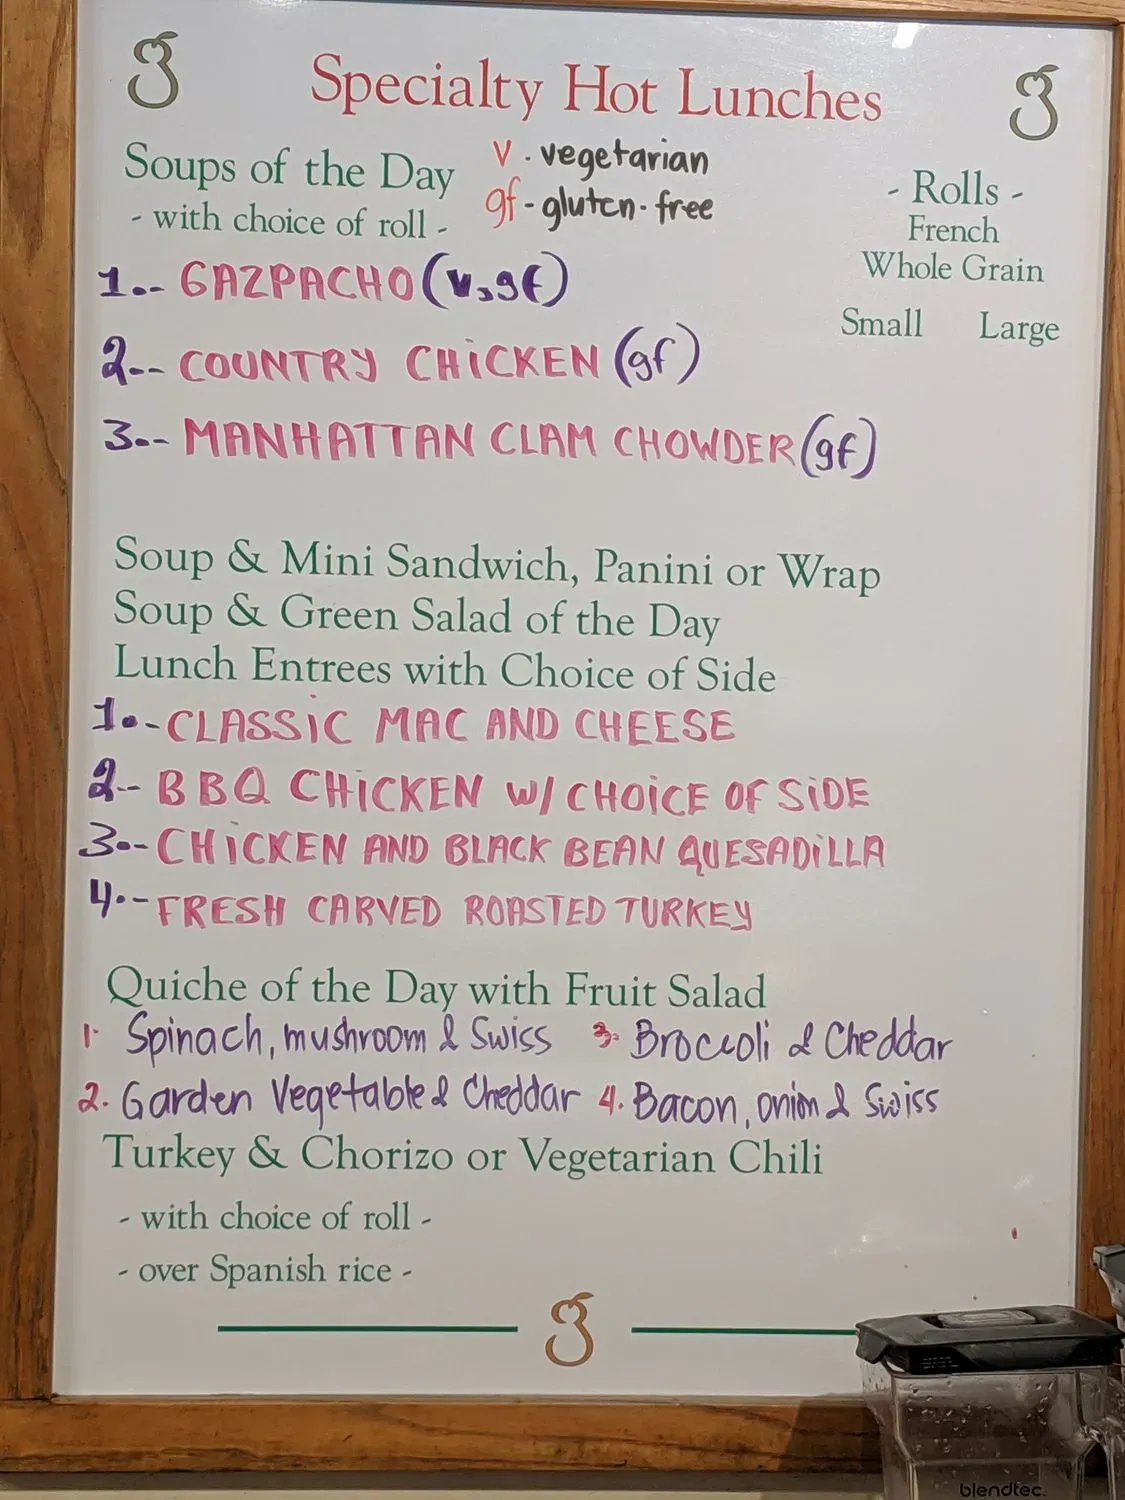 Specialty Hot Lunches
Soups of the Day
- with choice of roll -
v - vegetarian
gf - gluten-free
- Rolls -
French
Whole Grain
Small Large
1.- GAZPACHO (v, gf)
2.- COUNTRY CHiCKEN (gf)
3.- MANHATTAN CLAM CHOWDER (gf)
Soup & Mini Sandwich, Panini or Wrap
Soup & Green Salad of the Day
Lunch Entrees with Choice of Side
1.- CLASSiC MAC AND CHEESE
2.- BBQ CHiCKEN W/ CHOiCE OF SiDE
3.- CHiCKEN AND BLACK BEAN QUESADiLLA
4.- FRESH CARVED ROASTED TURKEY
Quiche of the Day with Fruit Salad
1. Spinach, mushroom & Swiss 3. Broccoli & Cheddar
2. Garden Vegetable & Cheddar 4. Bacon, onion & Swiss
Turkey & Chorizo or Vegetarian Chili
- with choice of roll -
- over Spanish rice -
blendtec